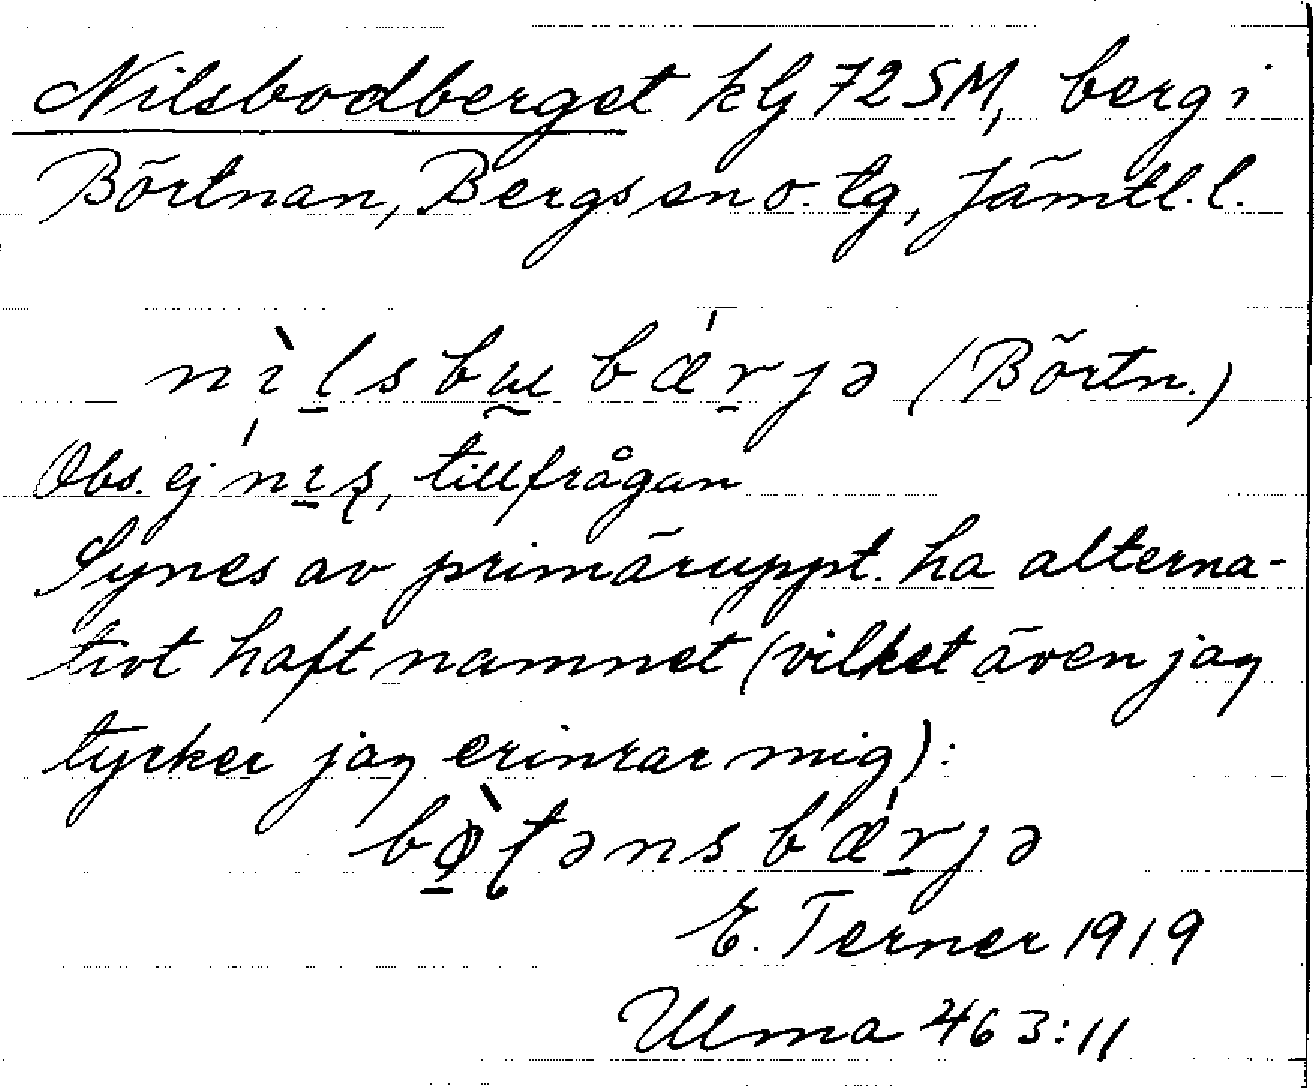 Nilsbodberget klj 72 SM, berg i
Börtnan, Bergs sn o. tg, Jämtl. l.
nìl̠sbɯbǽr̠jə (Börtn.)
Obs. ej nı̠ʂ, tillfrågan
Synes av primäruppt. ha alterna-
tivt haft namnet (vilket även jag
tycker jag erinrar mig):
bò̠ʈənsbǽr̠jə
E. Terner 1919
Ulma 463:11